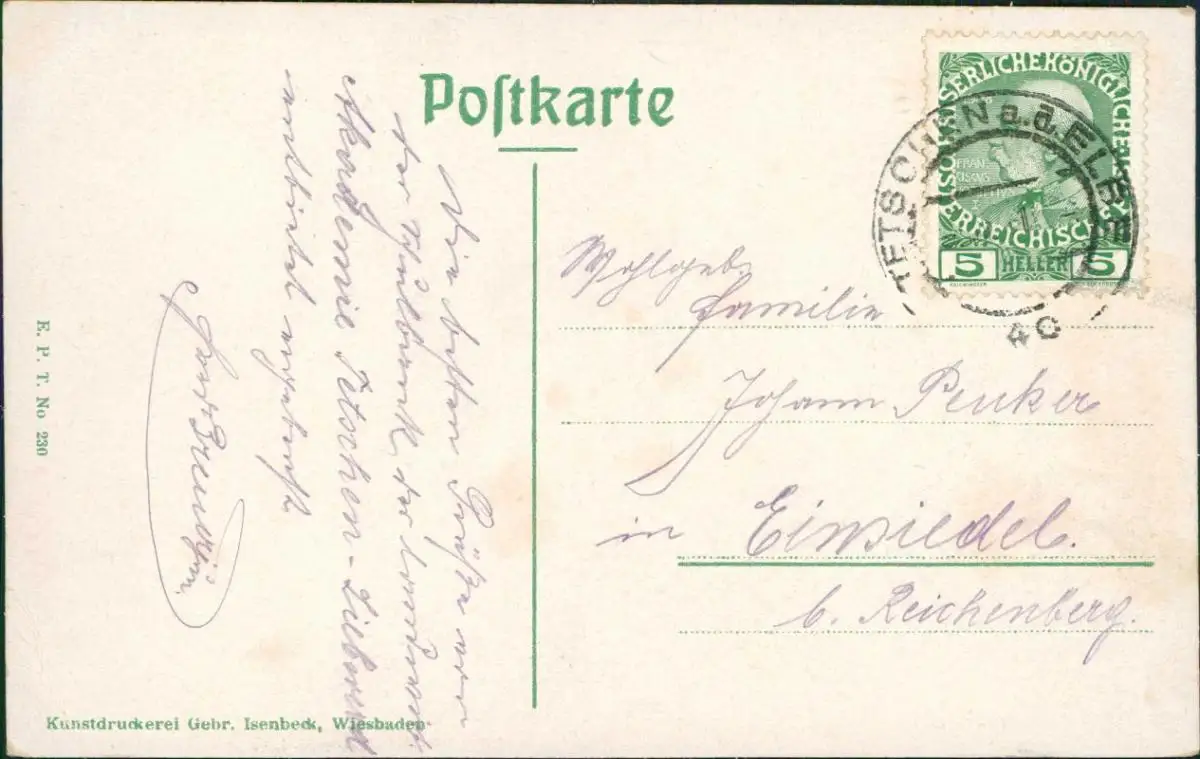 Postkarte
KAISERLICHE KÖNIGLICHE
ÖSTERREICHISCHE
FRAN
CISCVS
5 HELLER 5
TETSCHEN a. d. ELBE
Wohlgeb.
Familie
Johann Peuker
in Einsiedel.
b. Reichenberg.
Die besten Grüße von
der
Akademie Tetschen-Liebwerd
E. P. T. No 230
Kunstdruckerei Gebr. Isenbeck, Wiesbaden